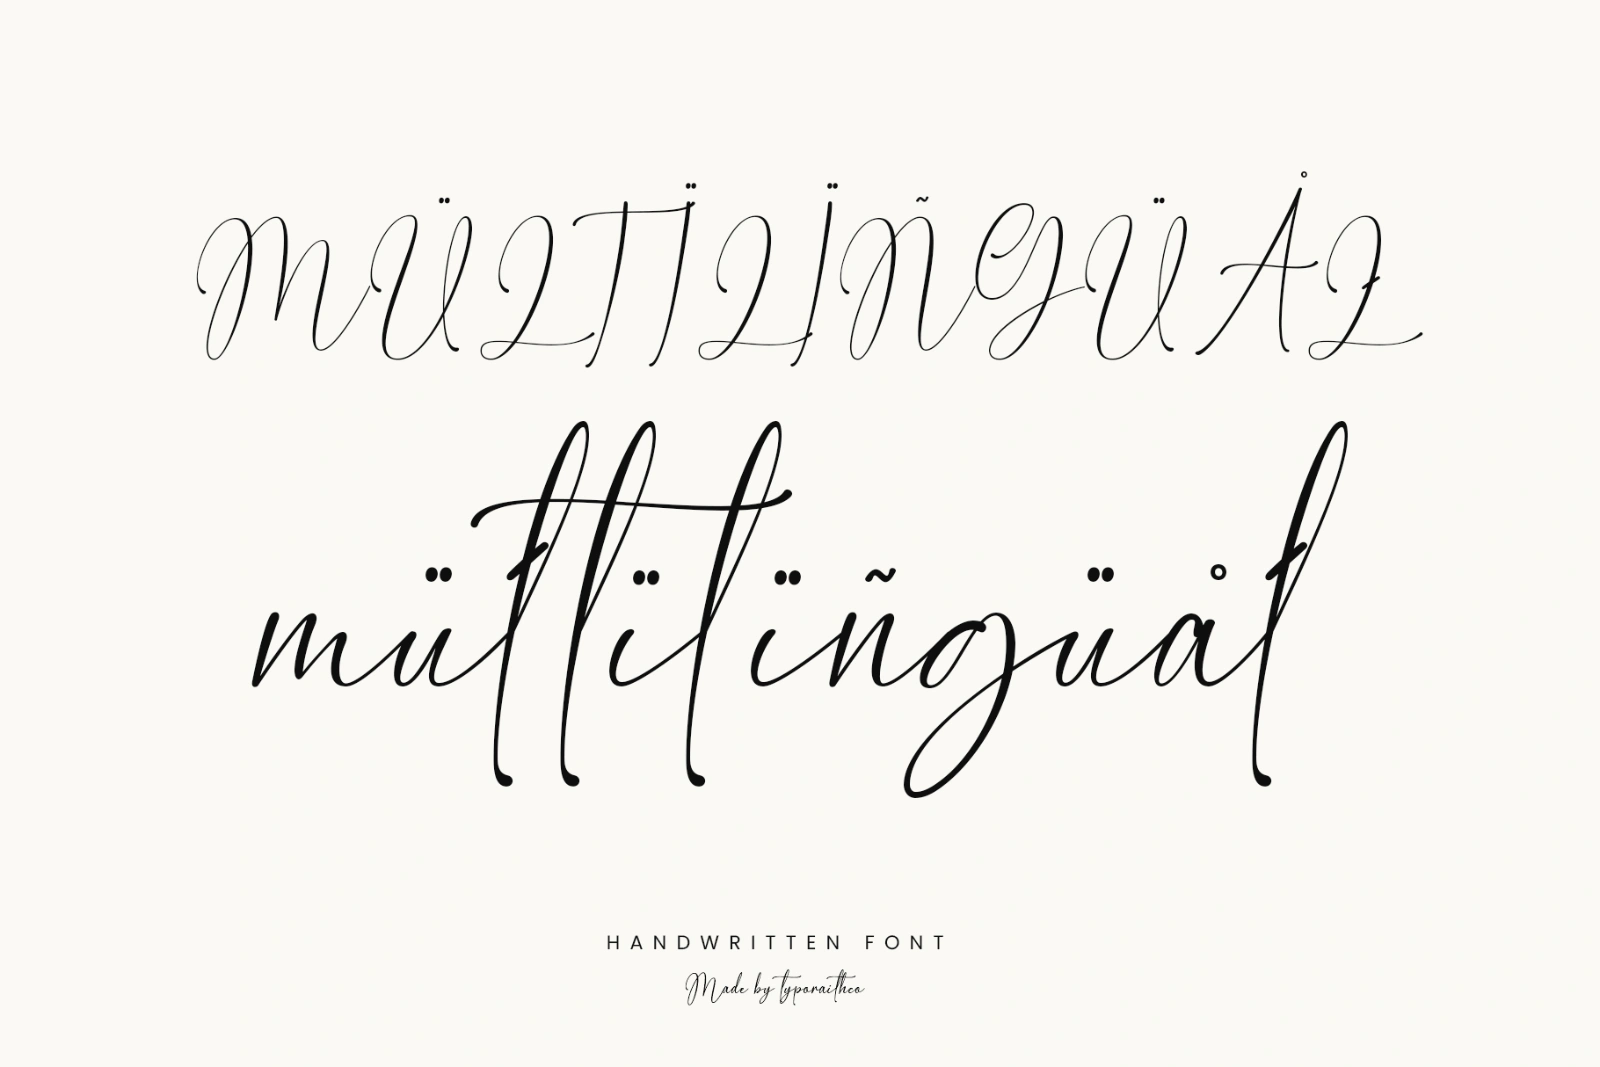 MÜLTÏLÏÑGÜÅŁ
müłtïlïñgüåł
HANDWRITTEN FONT
Made by typoraitheo